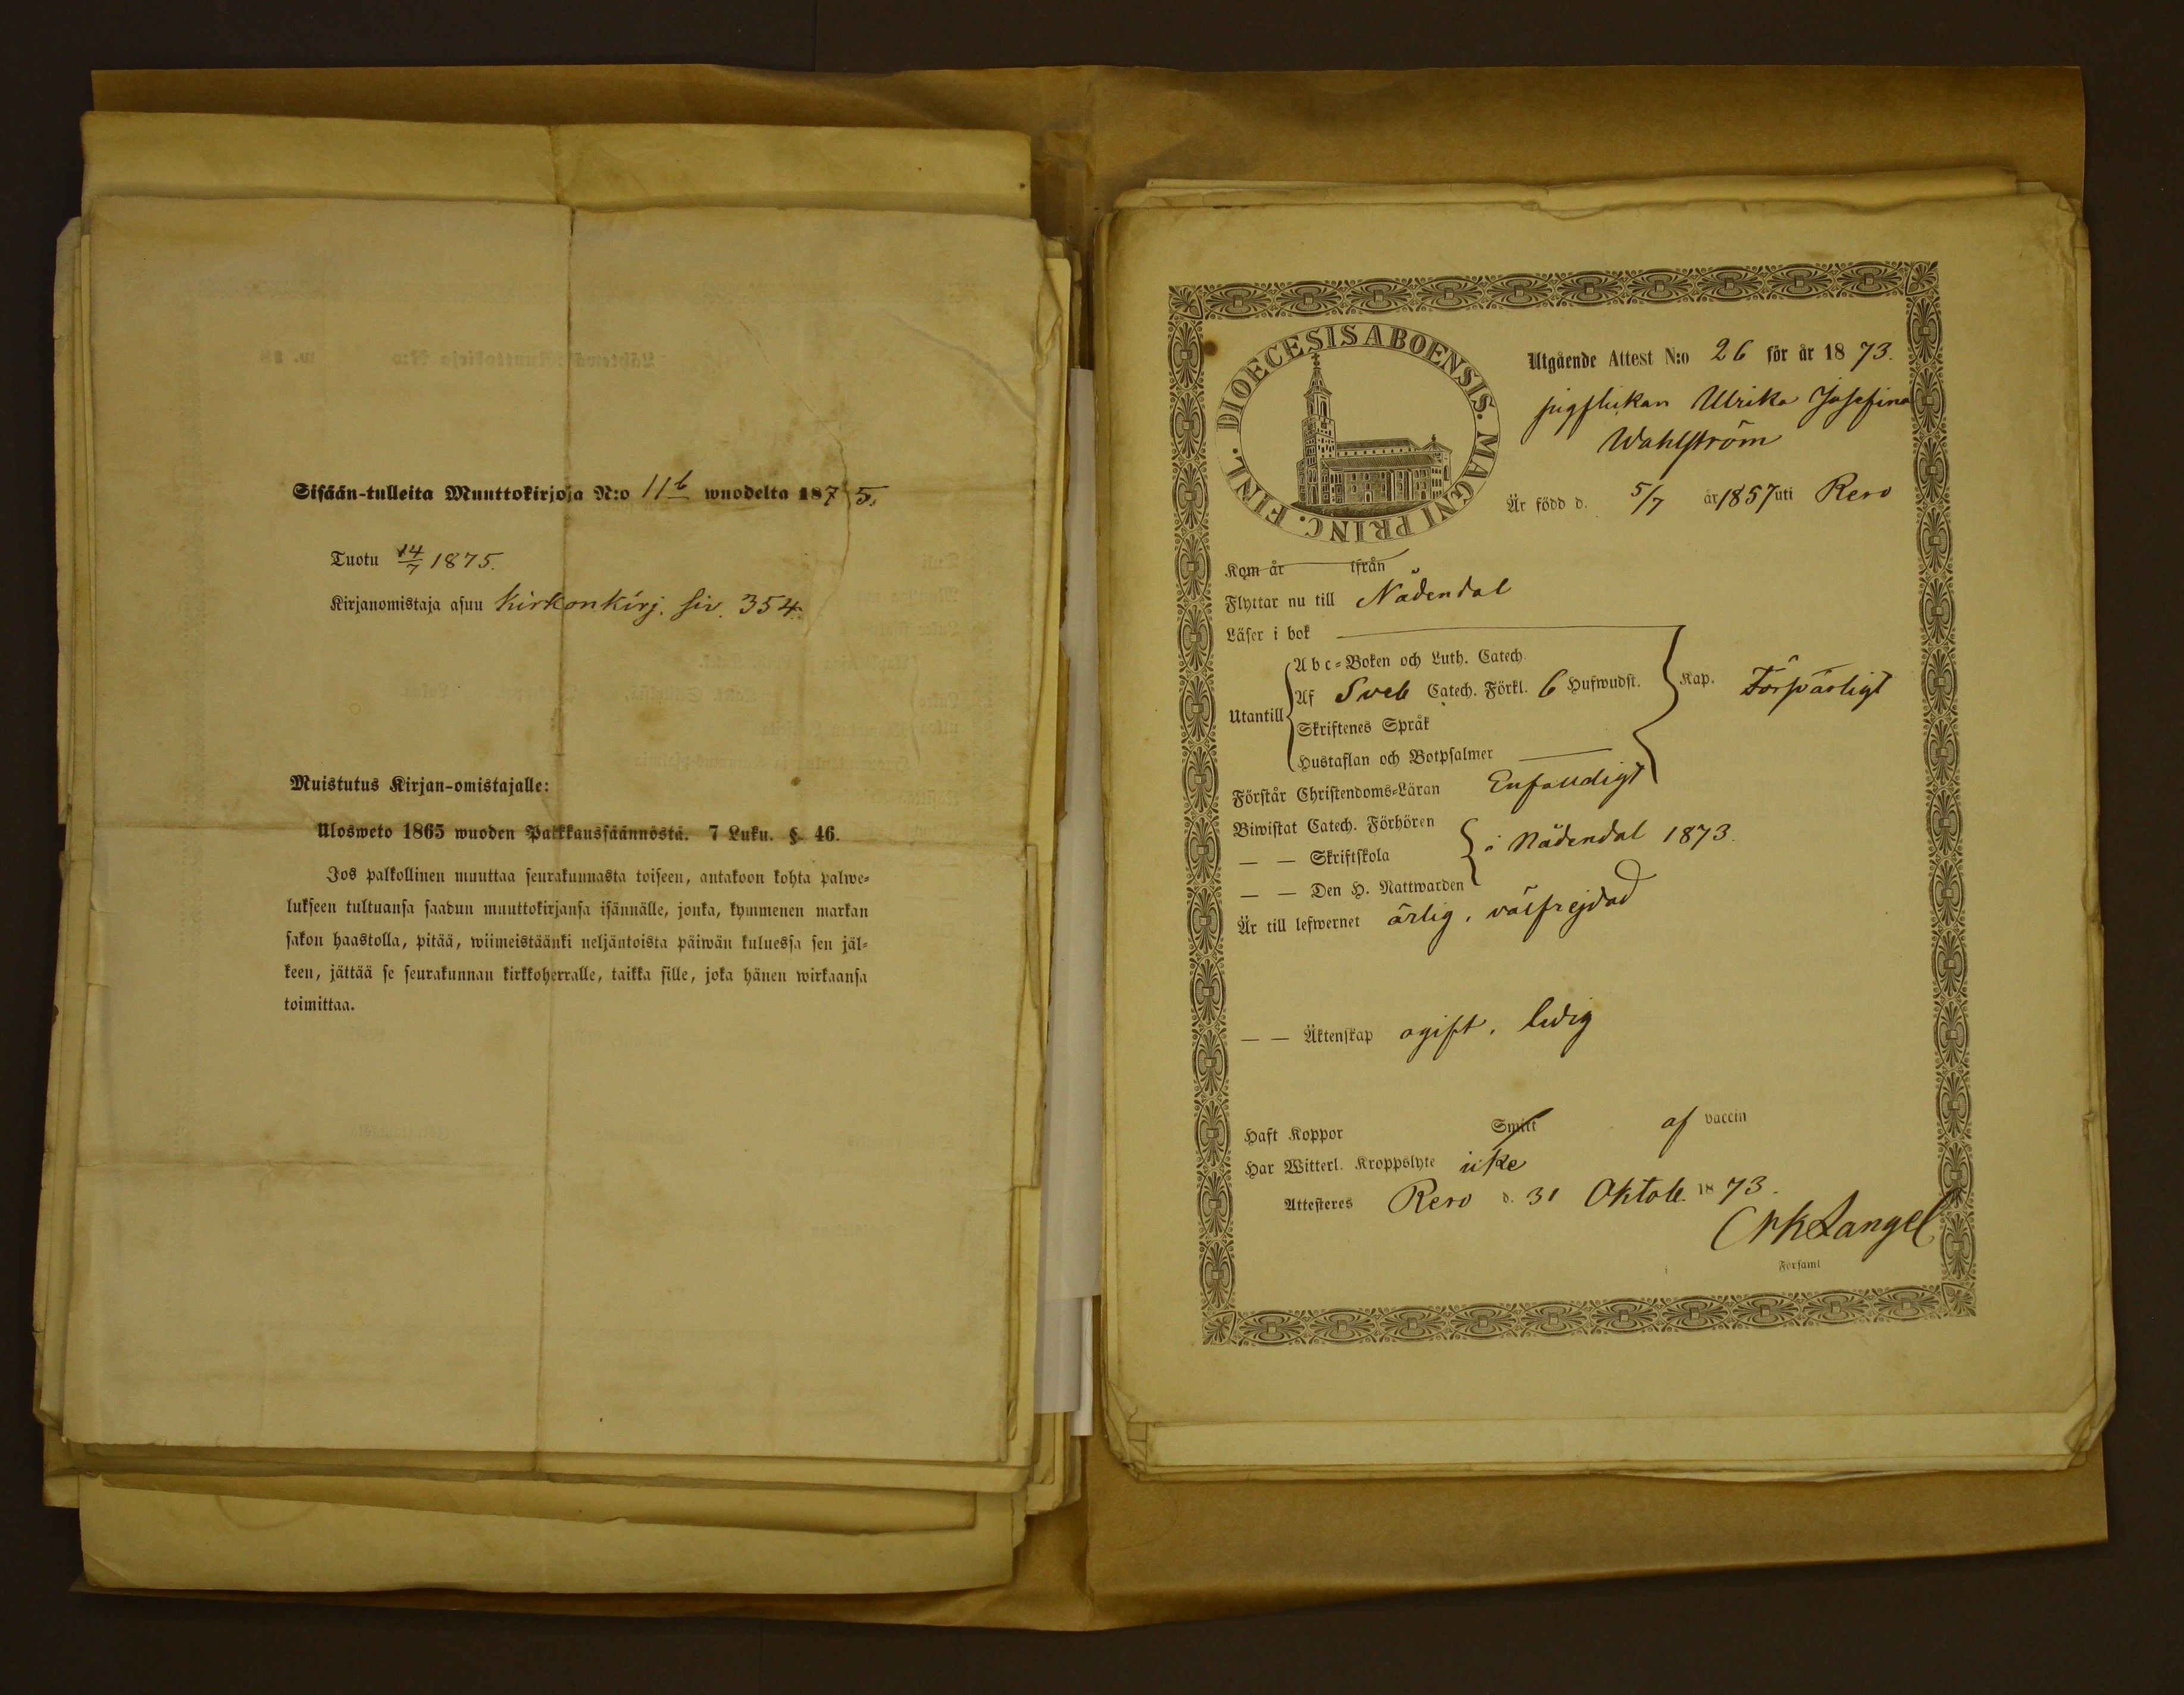 Sisään-tulleita Muuttokirjoja N:o 11b wuodelta 1875.
Tuotu 14/7 1875.
Kirjanomistaja asuu Kirkonkirj. siv. 354.
Muistutus Kirjan-omistajalle:
Ulosweto 1865 wuoden Palkkaussäännöstä. 7 Luku. § 46.
Jos palkollinen muuttaa seurakunnasta toiseen, antakoon kohta palwe=
lukseen tultuansa saadun muuttokirjansa isännälle, jonka, kymmenen markan
sakon haastolla, pitää, wiimeistäänki neljäntoista päiwän kuluessa sen jäl=
keen, jättää se seurakunnan kirkkoherralle, taikka sille, joka hänen wirkaansa
toimittaa.
DIOECESIS ABOENSIS. MAGNI PRINC. FINL.
Utgående Attest N:o 26 för år 1873.
pigflickan Ulrika Josefina
Wahlström
Är född d. 5/7 år 1857 uti Reso
Kom år ifrån
Flyttar nu till Nådendal
Läser i bok
Utantill
Abc=Boken och Luth. Catech.
Af Sveb Catech. Förkl. 6 Hufwudst. Kap. Försvarligt
Skriftenes Språk
Hustaflan och Botpsalmer
Förstår Christendoms=Läran Enfaldigt
Biwistat Catech. Förhören
— — Skriftskola i Nådendal 1873.
— — Den H. Nattwarden
Är till lefwernet ärlig, välfrejdad
— — Äktenskap ogift, ledig
Haft Koppor Smitt af vaccin
Har Witterl. Kroppslyte icke
Attesteres Reso d. 31 Oktob. 1873.
Langel
i Församl